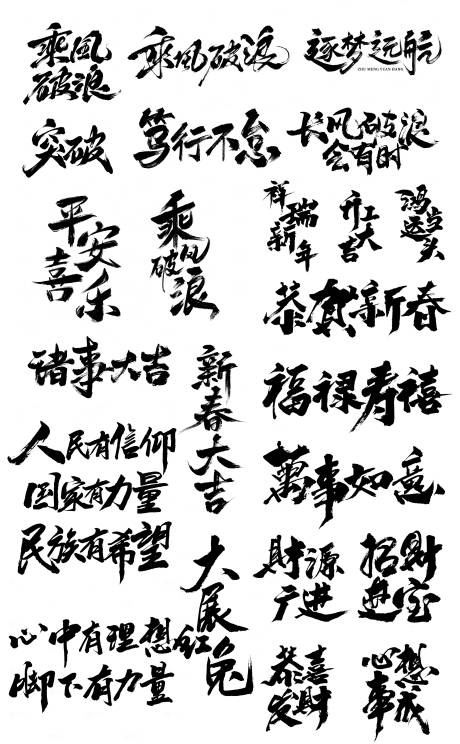 乘風
破浪
乘风破浪
逐梦远航
ZHU MENG YUAN HANG
突破
笃行不怠
长风破浪
会有时
平安
喜乐
乘风
破浪
祥瑞
新年
开工
大吉
鸿运
当头
恭贺新春
诸事大吉
新春大吉
福禄寿禧
人民有信仰
国家有力量
民族有希望
萬事如意
大展红兔
財源
广进
招財
進宝
心中有理想
脚下有力量
恭喜
发財
心想
事成